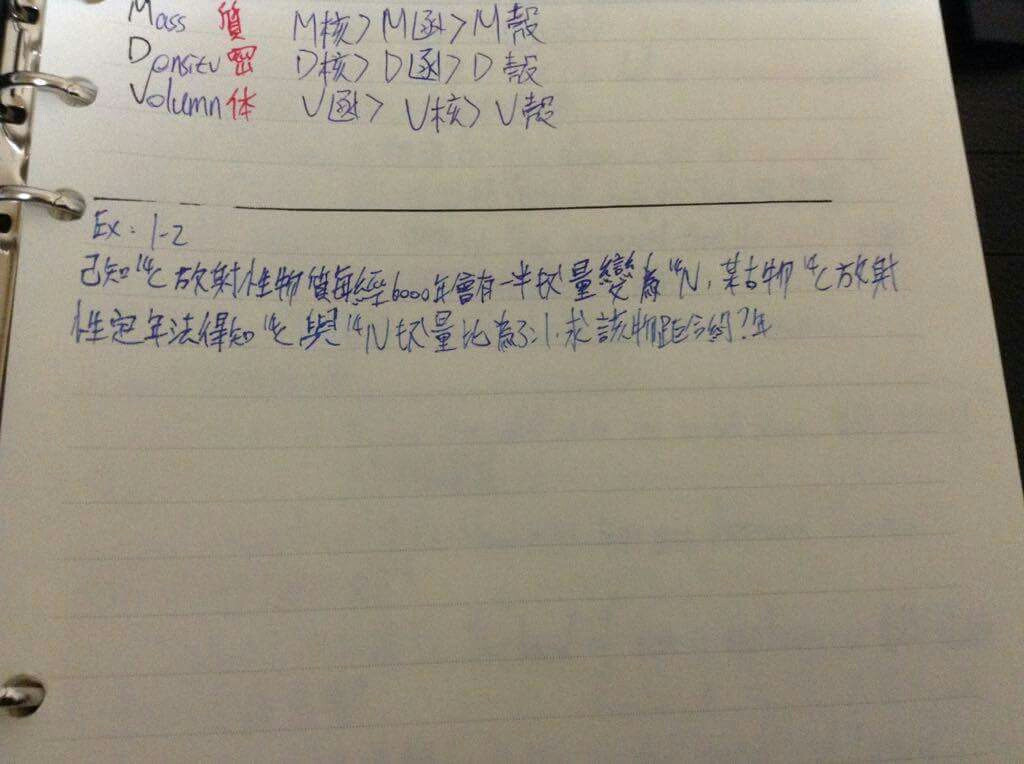 Mass 質 M核 > M函 > M殼
Density 密 D核 > D函 > D殼
Volumn 体 V函 > V核 > V殼
Ex. 1-2
已知 ¹⁴C 放射性物質每經6000年會有一半收量變為 ¹⁴N, 某古物 ¹⁴C 放射
性定年法得知 ¹⁴C 與 ¹⁴N 收量比為 :1. 求該物距今約?年